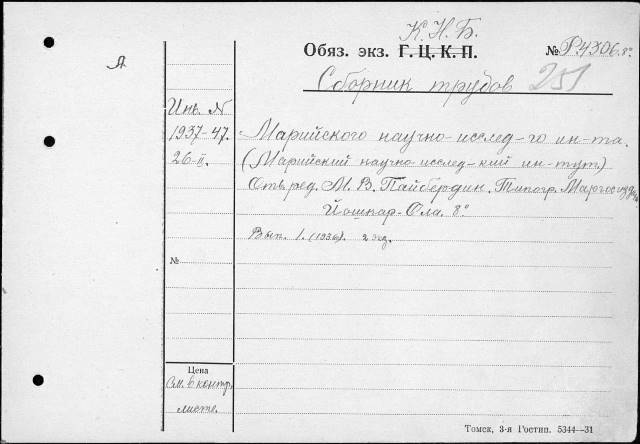 К. Н. Б.
Обяз. экз. Г. Ц. К. П. № Р.4306. 8°
А
Сборник трудов 251
Инв. N
1937-47.
26-II.
Марийского научно-исслед-го ин-та.
(Марийский научно-исслед-кий ин-тут)
Отв. ред. М. В. Пайбердин. Типогр.
Йошкар-Ола. 8°
Вып. 1. (1936). 2 экз.
№
Цена
См. в контр.
листе.
Томск, 3-я Гостип. 5344—31